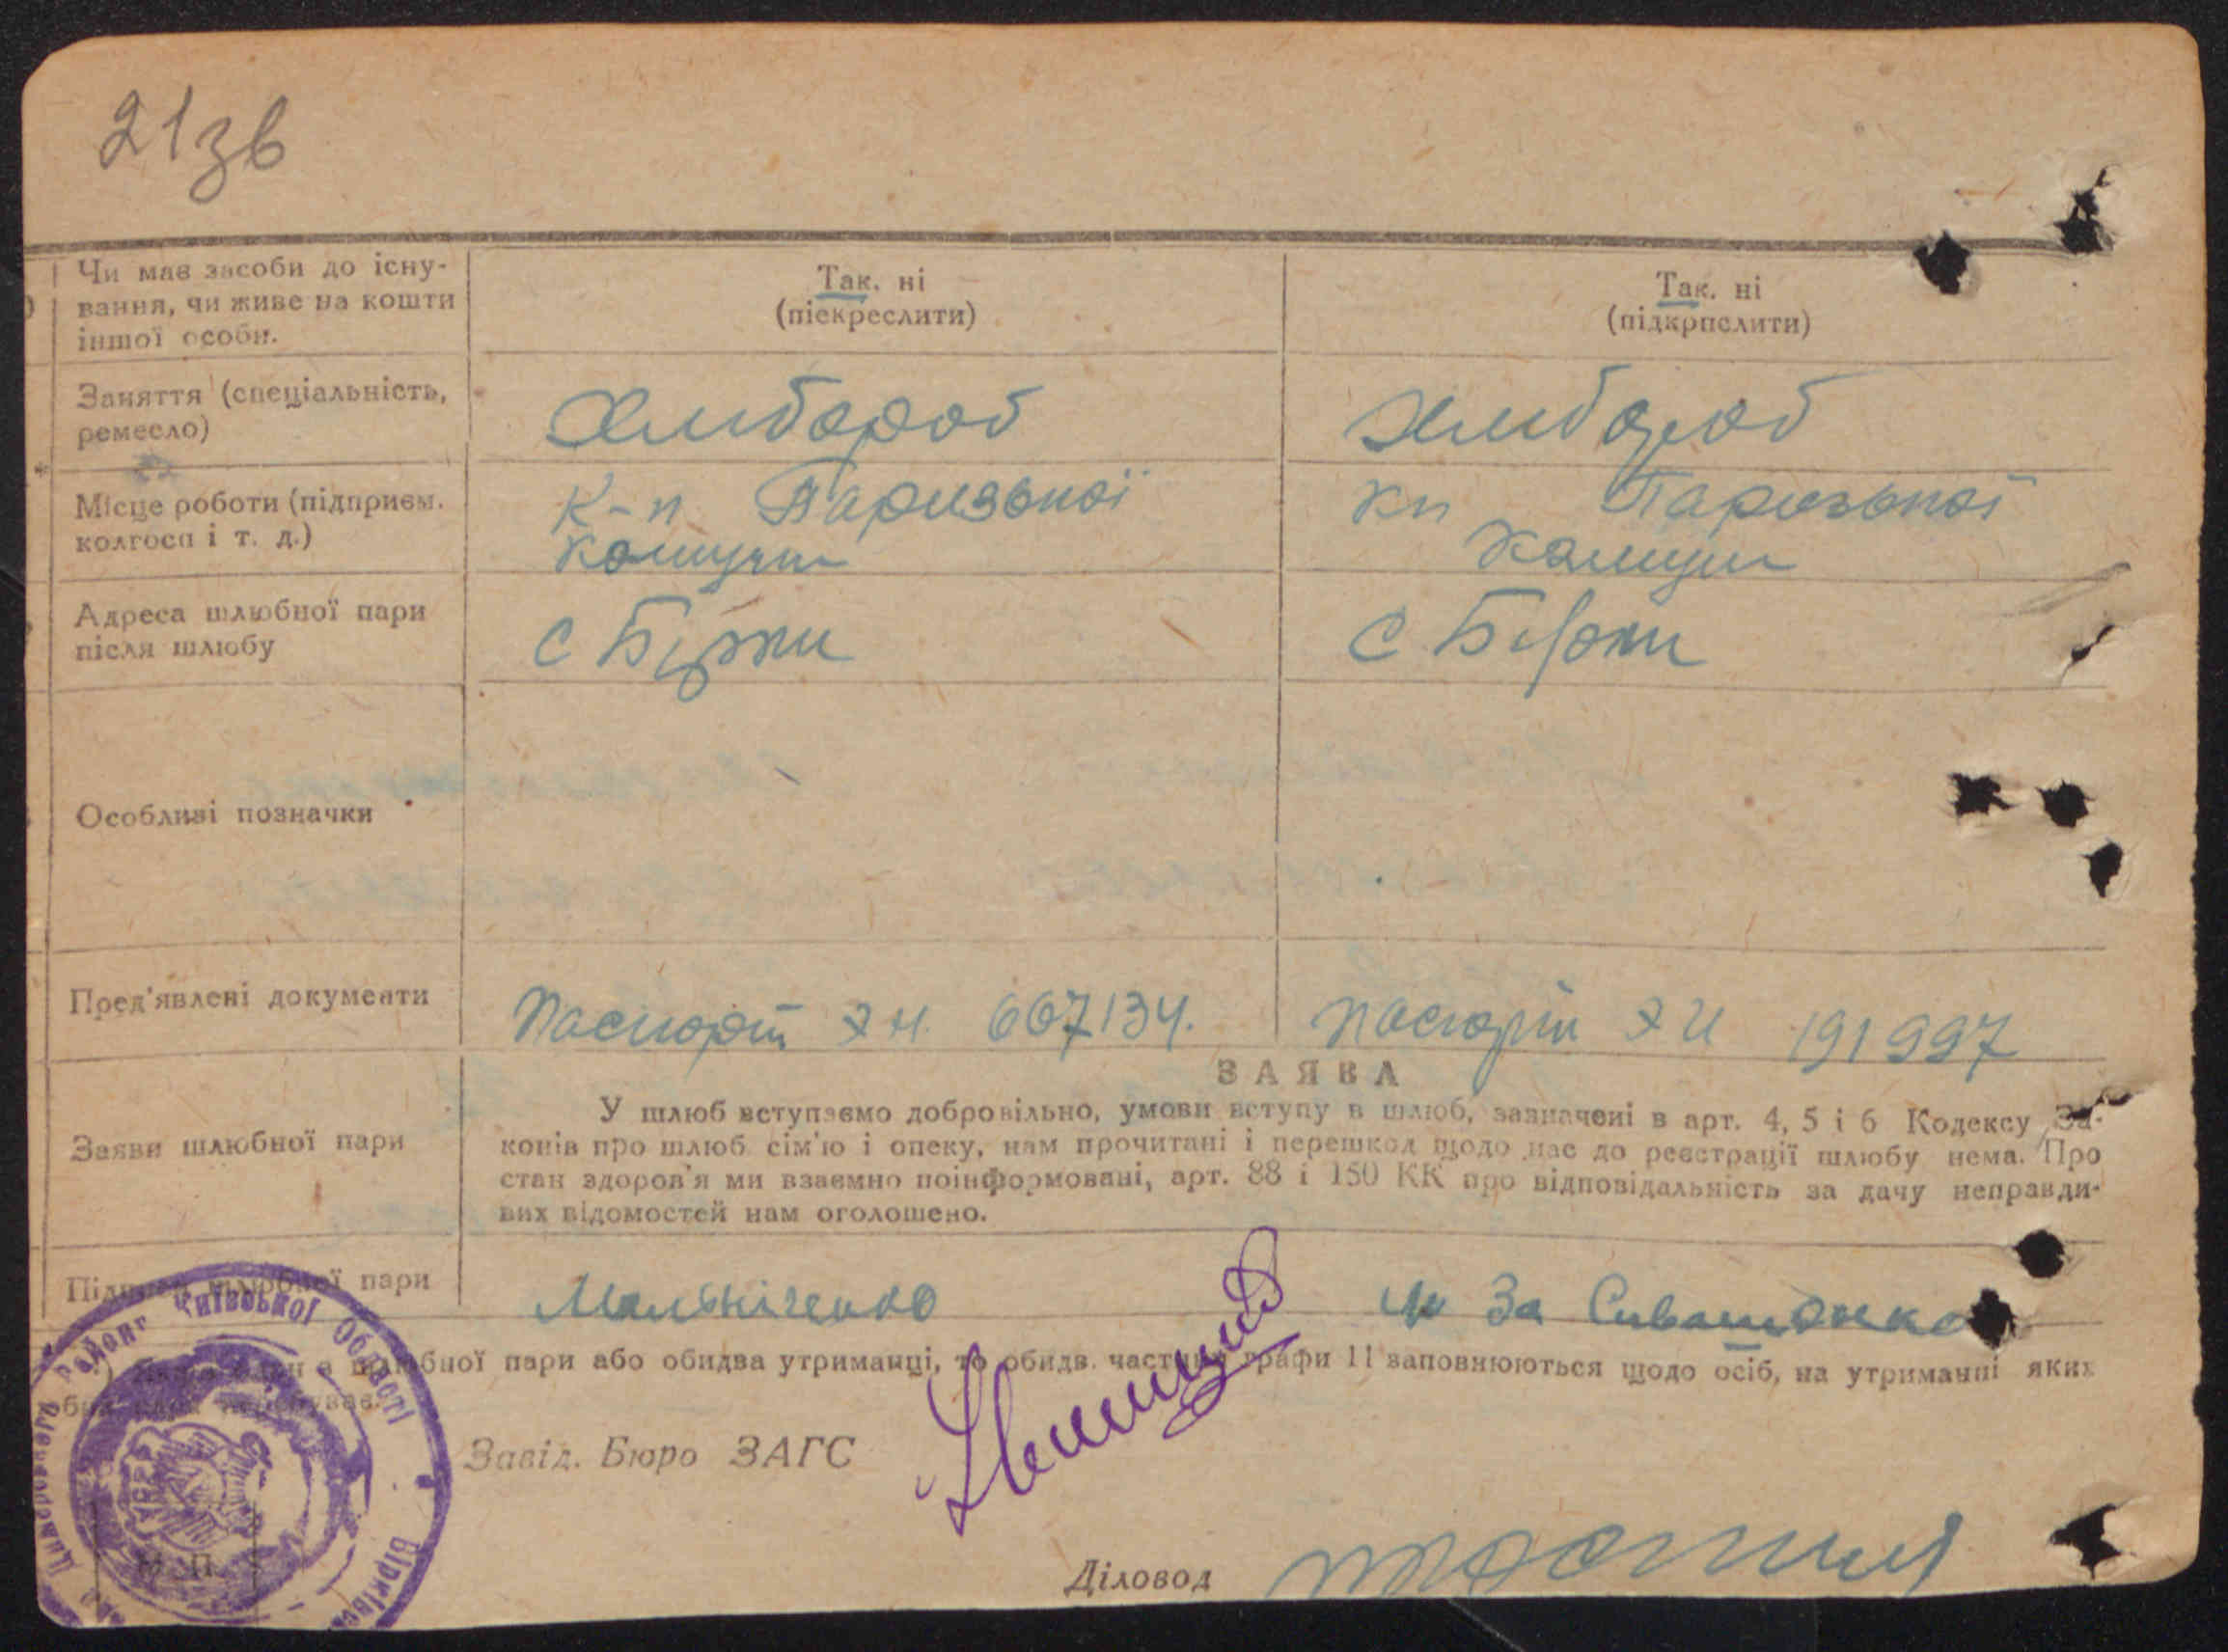 21зв
Чи має засоби до існу-
вання, чи живе на кошти
іншої особи.
Так. ні
(піекреслити)
Так. ні
(підкрпслити)
Заняття (спеціальність,
ремесло)
Хлибороб
Хлибороб
Місце роботи (підприєм.
колгосп і т. д.)
К-п Паризької
Комуни
кп Паризької
Комуни
Адреса шлюбної пари
після шлюбу
С Бірки
С Бірки
Особливі позначки
Пред'явлені документи
Паспорт 667134.
Паспорт 191997
ЗАЯВА
Заяви шлюбної пари
У шлюб вступаємо добровільно, умови вступу в шлюб, зазначені в арт. 4, 5 і 6 Кодексу За-
конів про шлюб сім'ю і опеку, нам прочитані і перешкод щодо нас до реєстрації шлюбу нема. Про
стан здоров'я ми взаємно поінформовані, арт. 88 і 150 КК про відповідальність за дачу неправди-
вих відомостей нам оголошено.
Підписи шлюбної пари
Мельніченко
За
шлюбної пари або обидва утриманці, то обидв. частини графи 11 заповнюються щодо осіб, на утриманні яких
Завід. Бюро ЗАГС
Діловод
М. П.
Димерського Району Київської Області
УСРР